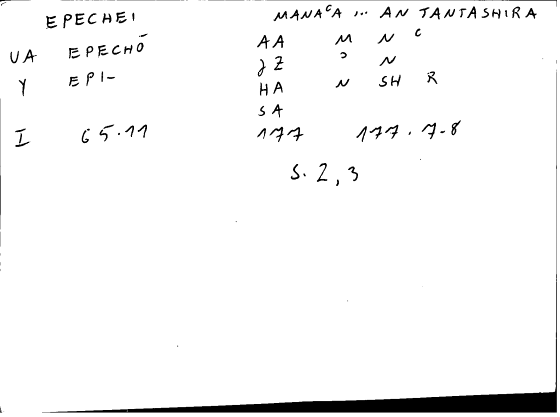 EPECHEI MANAᶜA ... AN TANTASHIRA
UA EPECHŌ AA M N C
Y EPI- JZ ɔ N
HA N SH R
SA
I 65.11 177 177.7-8
S. 2, 3